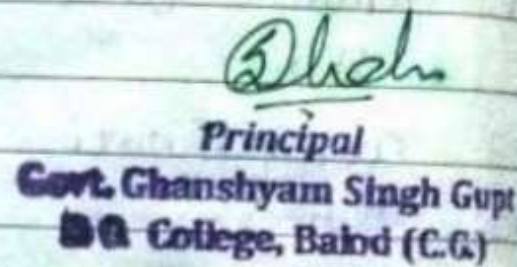 Principal
Govt. Ghanshyam Singh Gupt
College, Balod (C.G.)